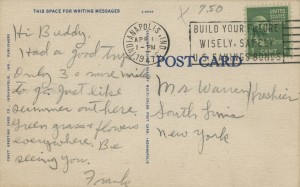 THIS SPACE FOR WRITING MESSAGES
Hi Buddy.
Had a good trip
Only 3 a more miles
to go. Just like
summer out here.
Green grass & flowers
everywhere. Be
seeing you.
Frank
X 750
INDIANAPOLIS, IND.
APR
1 - PM
BUILD YOUR FUTURE
WISELY SAFELY
U.S. SAVINGS BONDS
POST CARD
Ms Warren
South Lima
New York